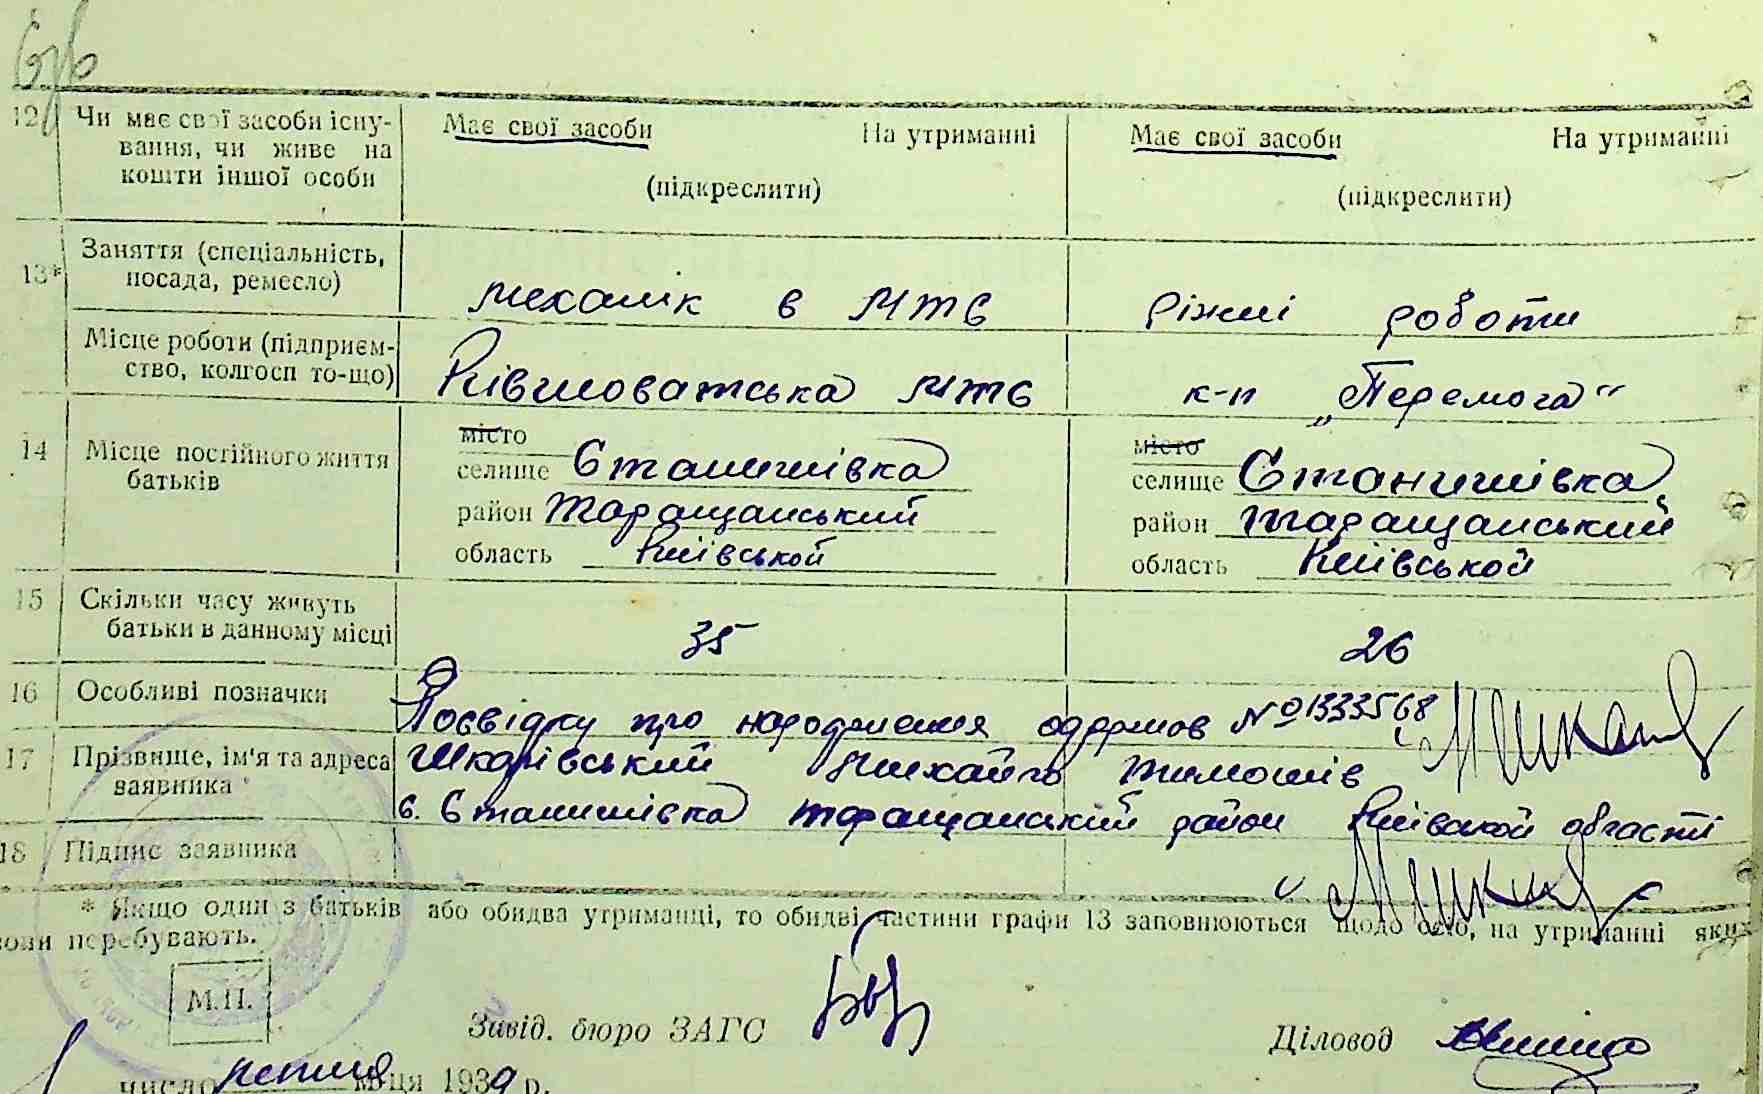 12 Чи має свої засоби існу- Має свої засоби На утриманні Має свої засоби На утриманні
вання, чи живе на
кошти іншої особи (підкреслити) (підкреслити)
13* Заняття (спеціальність,
посада, ремесло) механік в МТС ріжні роботи
Місце роботи (підприєм-
ство, колгосп то-що) Ківшоватська МТС к-п „Перемога"
14 Місце постійного життя
батьків
місто місто
селище Станишівка селище Станишівка
район Таращанський район Таращанський
область Київської область Київської
15 Скільки часу живуть
батьки в данному місці 35 26
16 Особливі позначки Посвідку про народження одержав № 1333568
17 Прізвище, ім'я та адреса
заявника Михайло Тимошів
с. Станишівка Таращанський район Київської області
18 Підпис заявника
* Якщо один з батьків або обидва утриманці, то обидві частини графи 13 заповнюються щодо осіб, на утриманні яких
вони перебувають.
М.П.
Завід. бюро ЗАГС Діловод
число м-ця 1939 р.